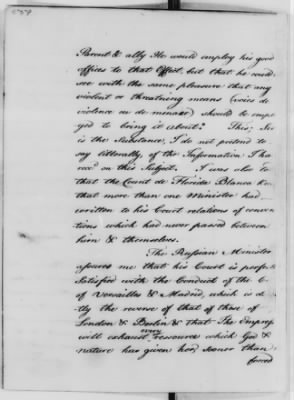 Parent & ally He would employ his good
offices to that Effect, but that he could
see with the same pleasure that any
violent or threatning means (voies de
violence ou de menace) should be emp
yed to bring it about? This, Sir
is the Substance, I do not pretend to
say litterally, of the Information I ha
recd on this Subject. I was also to
that the Count de Florida Blanca
that more than one Minister had
written to his Court relations of conver
tions which had never passed between
him & themselves.
The Russian Minister
assures me that his Court is perfectly
Satisfied with the Conduct of the C
of Versailles & Madrid, which is di
tly the reverse of that of those of
London & Berlin & that The Empress
will exhaust every ressource which God &
nature has given her, sooner than
forced